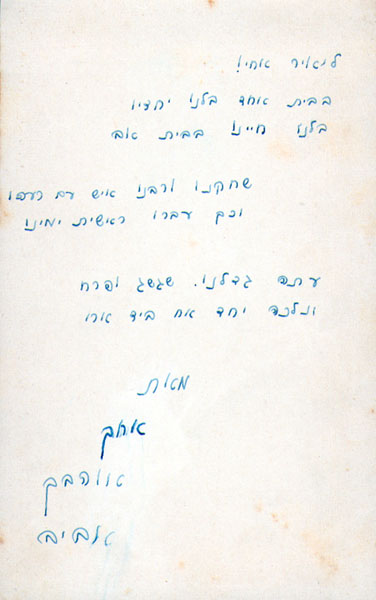 ליאיר אחי!
בבית אחד בלנו יחדיו
בלנו חיינו בבית אב
שחקנו ורבנו איש עם רעהו
וכך עברו ראשית ימינו
עתה גדלנו. שגשג ופרח
ונלכה יחד אח ביד
מאת
אחך
אוהבך